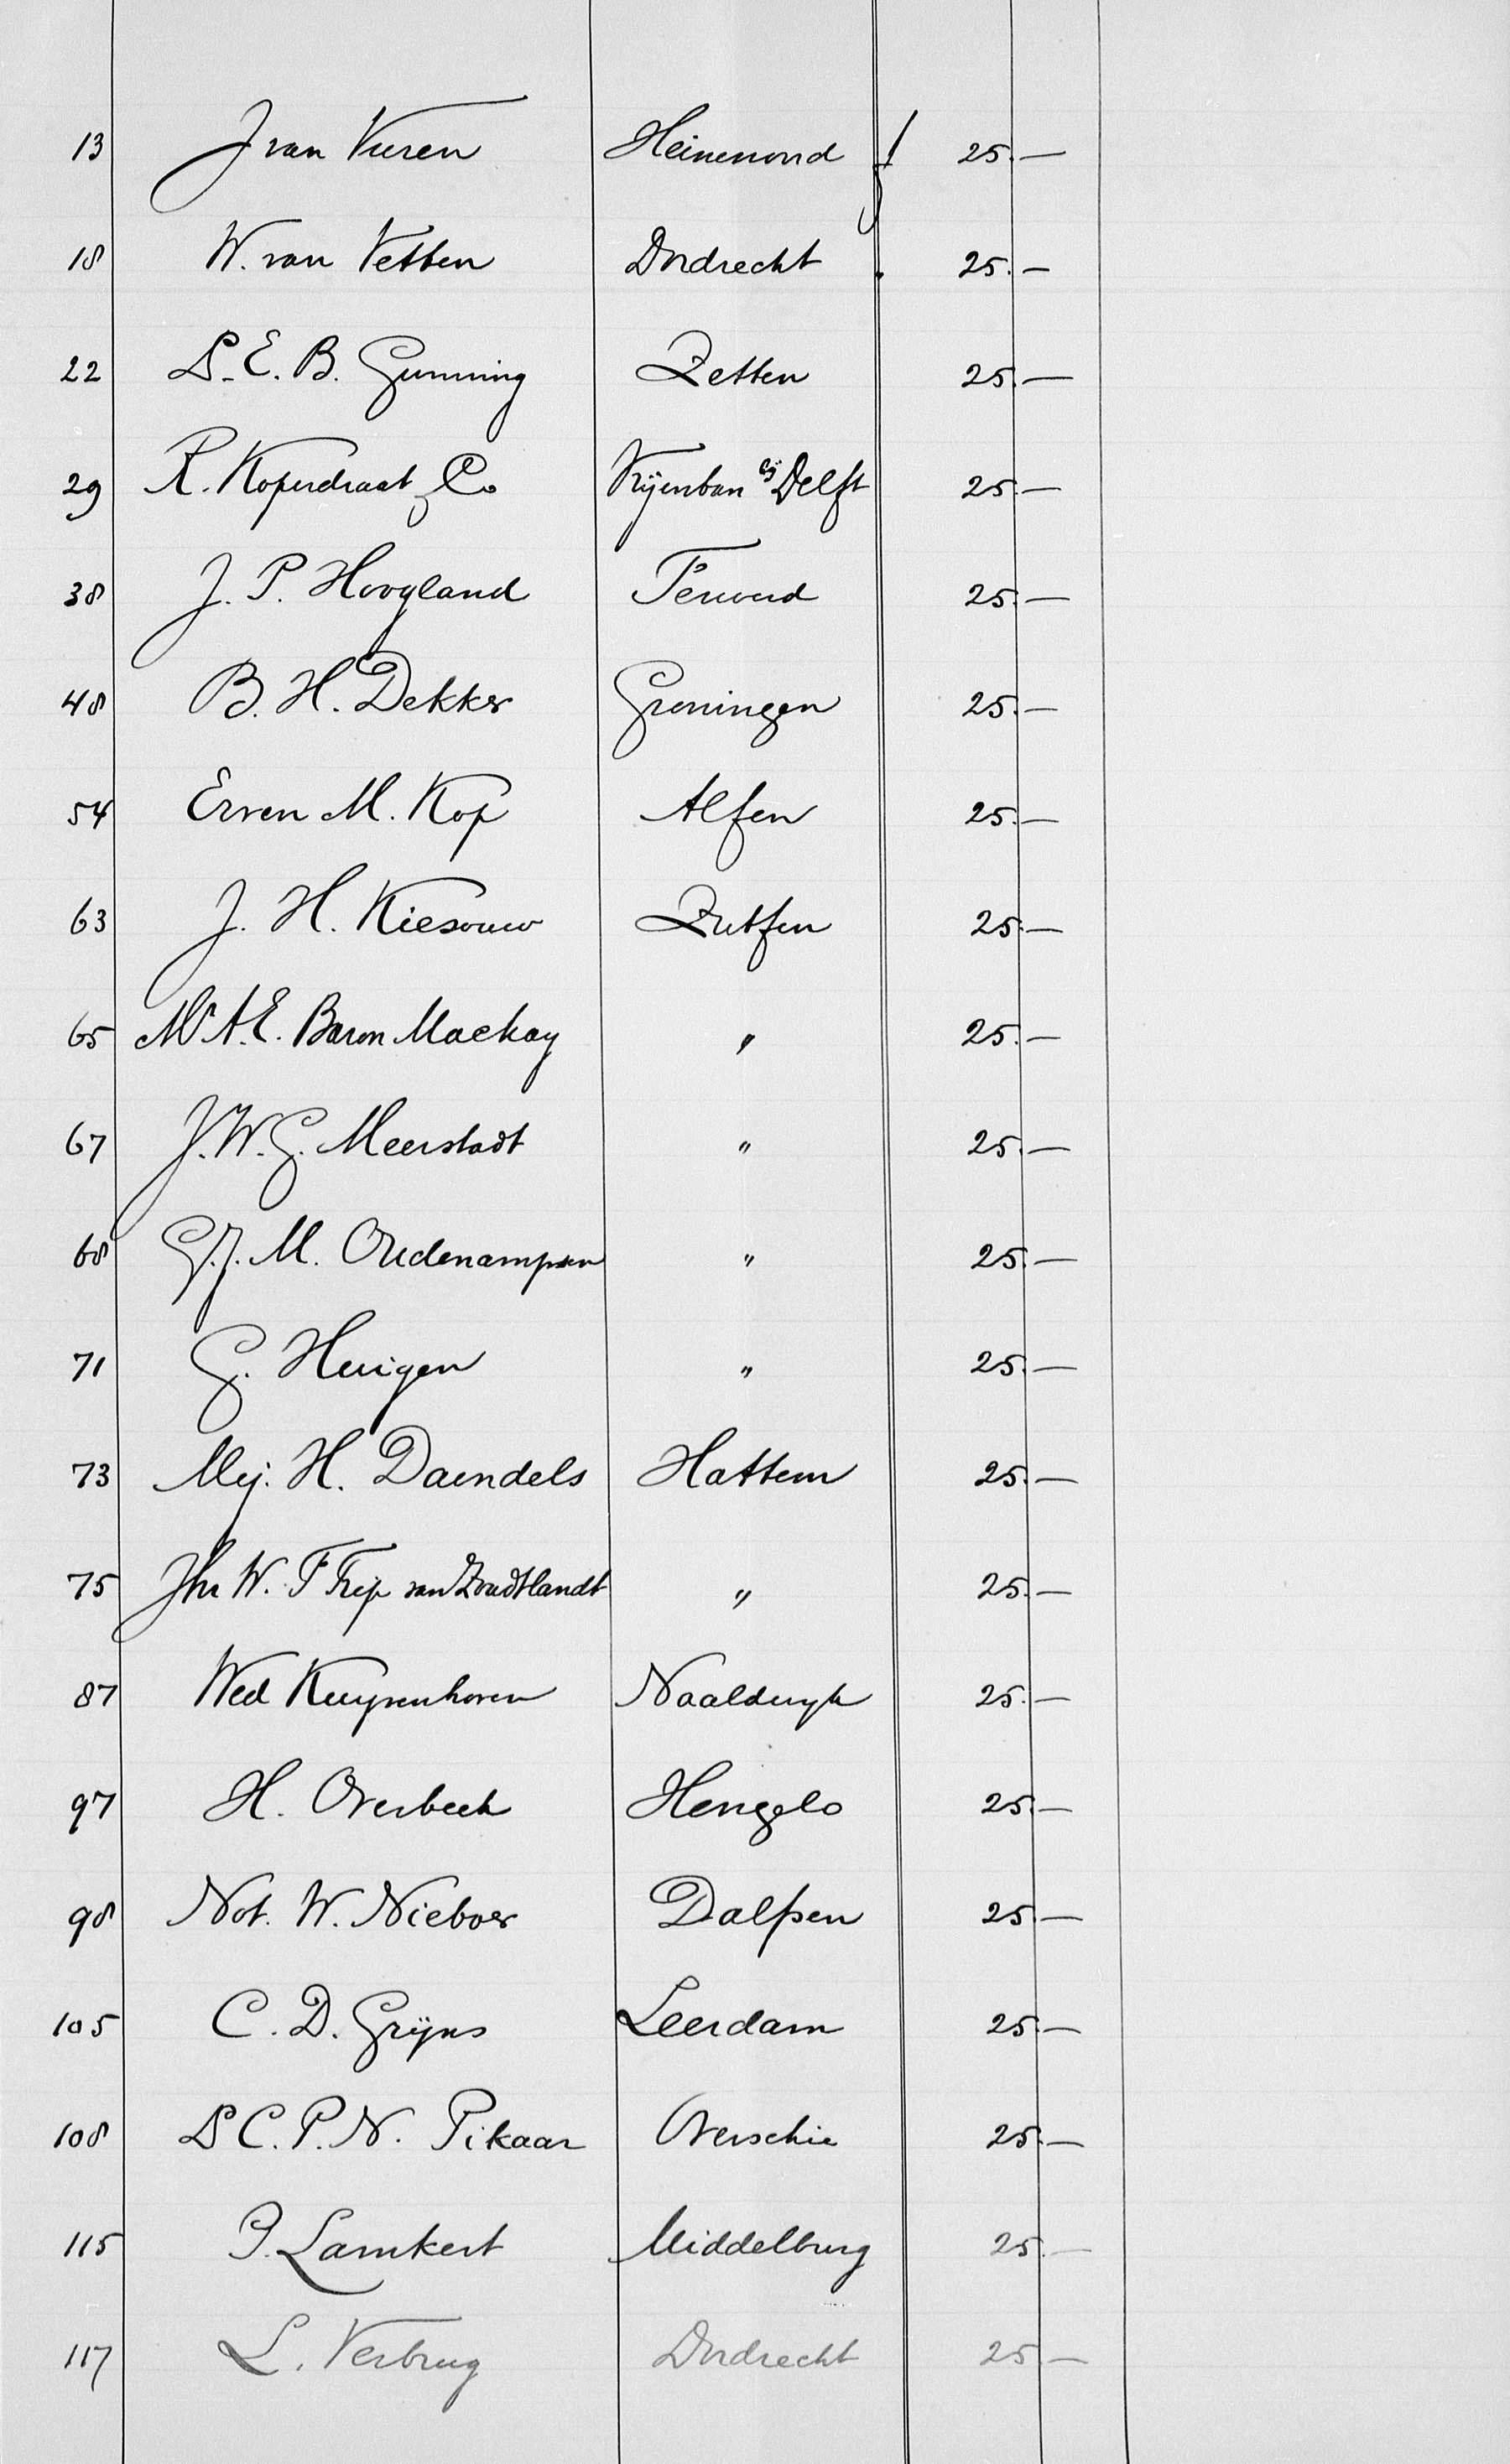 13 J van Vuren Heinenoord f 25.—
18 W. van Vetten Dordrecht " 25.—
22 Ds. E. B. Gunning Zetten 25.—
29 R. Koperdraat & Co Vrijenban bij Delft 25.—
38 J. P. Hoogland Ferwerd 25.—
48 B. H. Dekker Groningen 25.—
54 Erven M. Kop Alfen 25.—
63 J. H. Kiesouw Zutfen 25.—
65 Mr A. E. Baron Mackay " 25.—
67 J. W. G. Meerstadt " 25.—
68 G. J. M. Oudenampsen " 25.—
71 G. Huigen " 25.—
73 Mej. H. Daendels Hattem 25.—
75 Jhr W. F Trip van Zoudtlandt " 25.—
87 Wed Kuyvenhoven Naaldwyk 25.—
97 H. Overbeek Hengelo 25.—
98 Not. W. Nieboer Dalfsen 25.—
105 C. D. Grijns Leerdam 25.—
108 Ds C. P. N. Pikaar Overschie 25.—
115 P. Lamkert Middelburg 25.—
117 L. Verbrug Dordrecht 25.—